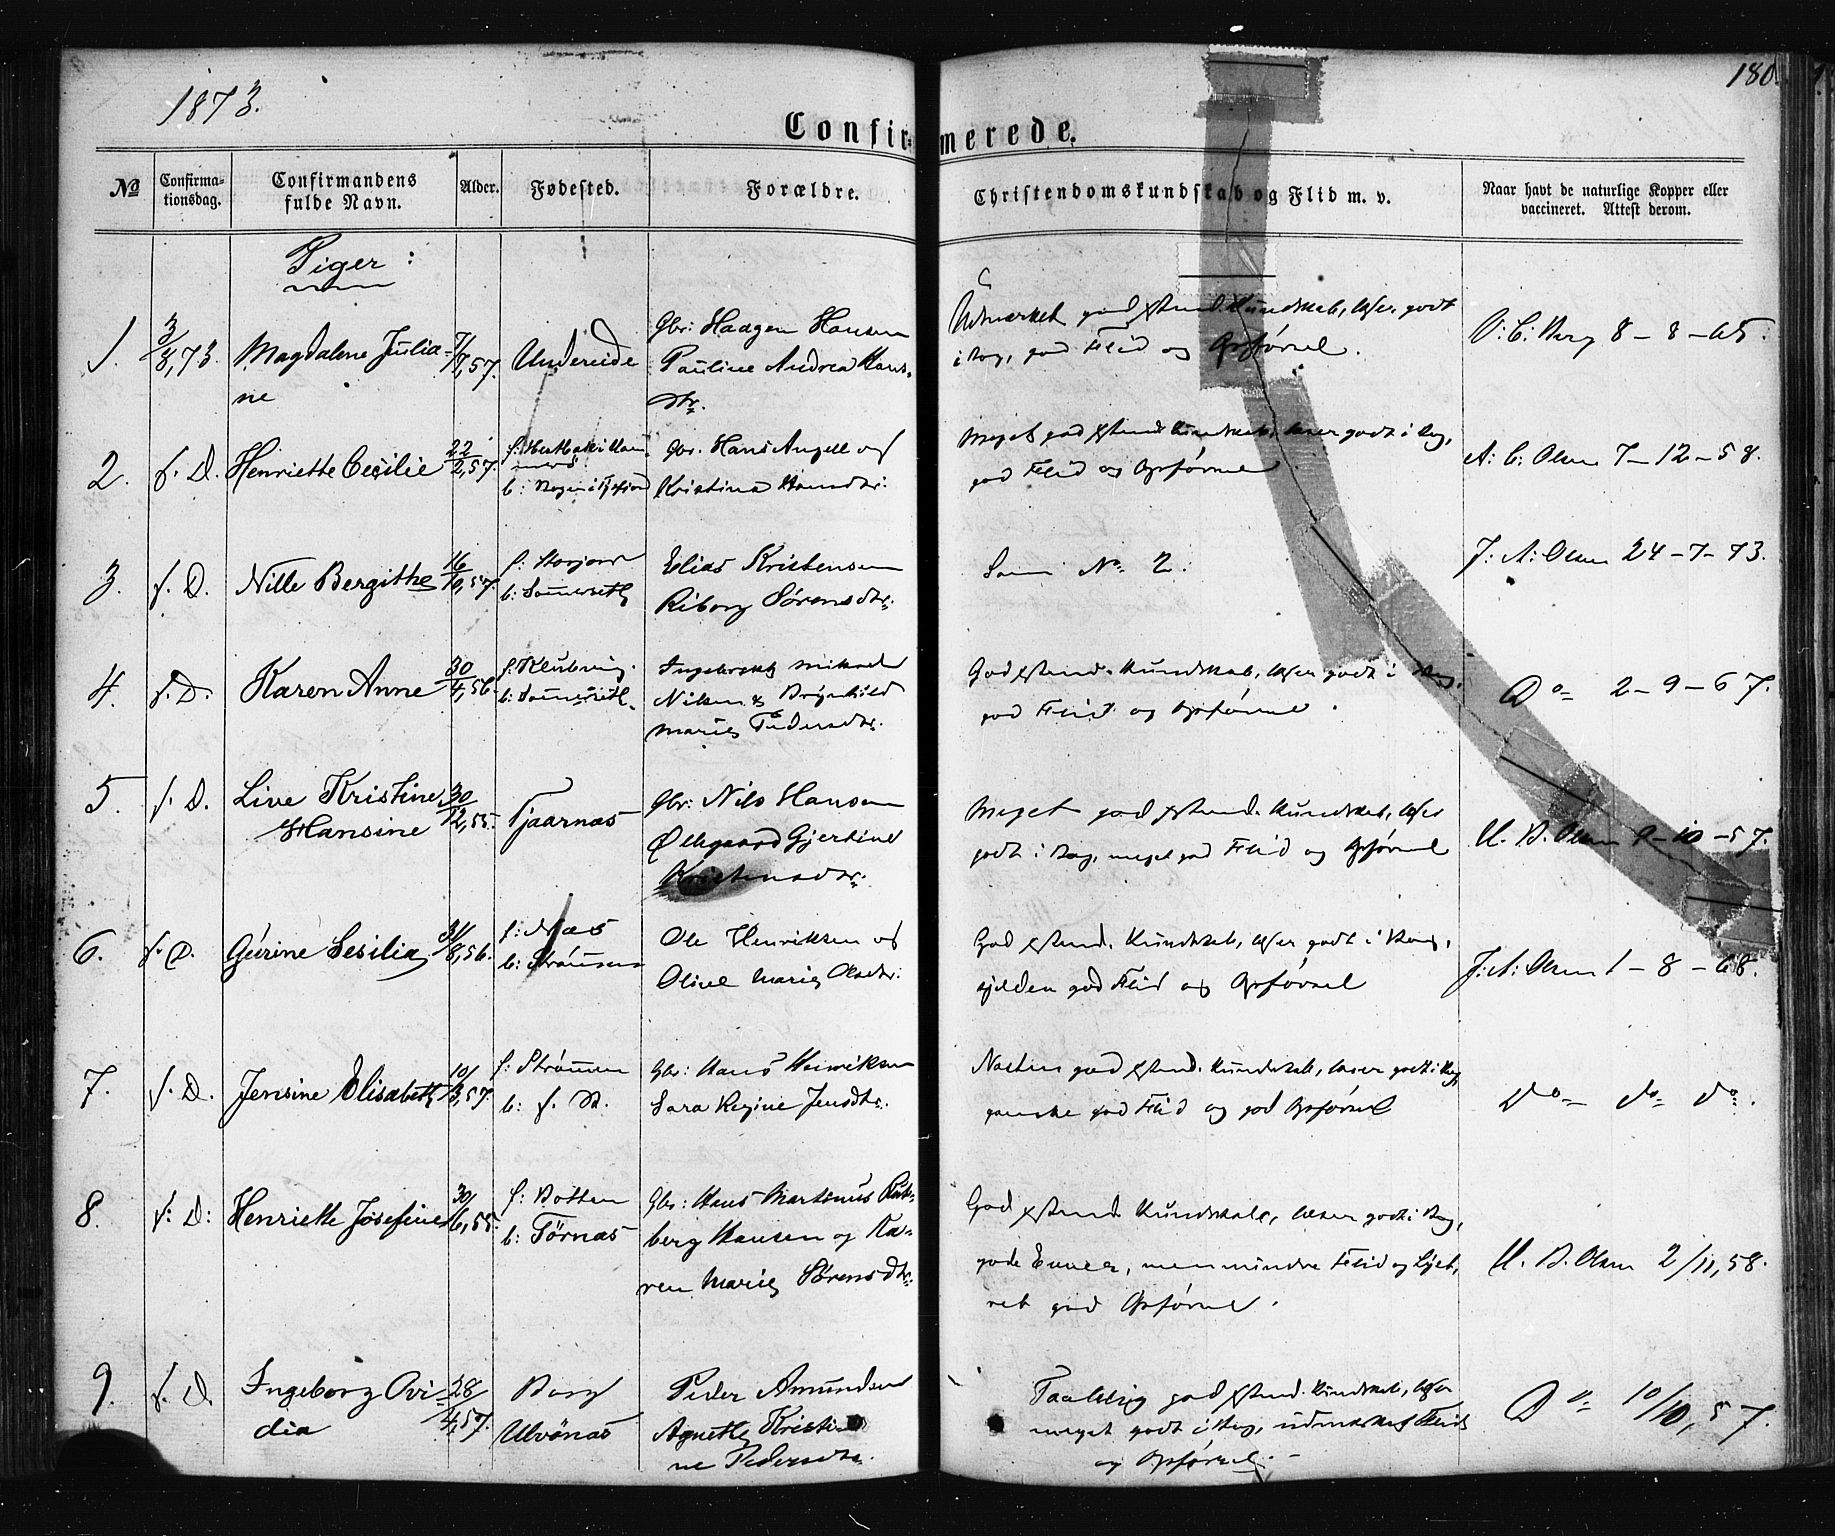 1873.
180.
Confirmerede.
No
Confirmationsdag.
Confirmandens fulde Navn.
Alder.
Fødested.
Forældre.
Christendomskundskab og Flid m. v.
Naar havt de naturlige Kopper eller vaccineret. Attest derom.
Piger:
1. 3/8,73. Magdalene Juliane 7/7,57. Undereide
Gbr: Haagen Hansen
Pauline Andrea Hansdtr.
Udmærket god Kundskab, læser godt
i Bog, god Flid og Opførsel.
8-8-65.
2. s. D. Henriette Cecilie 22/2,57.
Gbr. Hans Angell og
Kristina Hansdtr.
Meget god Kundskab, læser godt i Bog,
god Flid og Opførsel.
A: C: Olsen 7-12-58.
3. s. D. Nille Bergithe 16/10,57.
f: Storjord
b: Sommerseth
Elias Kristensen
Riborg Sørensdtr.
Som No 2.
J: A: Olsen 24-7-73.
4. s. D. Karen Anne 30/4,56.
f: Klubvig.
b: Sommerseth.
Ingebrigt Mikael
Nilsen & Brynhild
Marie Pedersdtr.
God Kundskab, læser godt i Bog,
god Flid og Opførsel.
Do 2-9-67.
5. s. D. Live Kristine Hansine 30/12,55. Tjaarnæs
Gbr: Nils Hansen
Øllegaard Gjertine
Kristensdtr.
Meget god Kundskab, læser
godt i Bog, meget god Flid og Opførsel
Olsen 9-10-57.
6. s. D. Gurine Sesilia 31/8,56.
f: Næs
b: Strømsnes
Ole Henriksen og
Oline Marie Olsdtr.
God Kundskab, læser godt i Bog,
sjelden god Flid og Opførsel
J: A: Olsen 1-8-68.
7. s. D. Jensine Elisabeth 10/3,57.
f: Strømmen
b: s. St.
Gbr: Hans Henriksen
Sara Regine Jensdtr.
Næsten god Kundskab, læser godt i Bog,
ganske god Flid og god Opførsel
Do do do.
8. s: D: Henriette Josefine 30/6,55.
f: Botten
b: Törnæs
Gbr: Hans Martinus
berg Hansen og Ka-
ren Marie Sørensdtr.
God Kundskab, læser godt i Bog,
gode Evner, men mindre Flid og
god Opførsel.
Olsen 2/11,58.
9. s. D. Ingeborg Ovidia 28/4,57.
Borg
Ulvönæs
Peder Amundsen
Agnethe Kristi-
ne Pedersdtr.
Taalelig god Kundskab, læser
meget godt i Bog, udmærket Flid
og Opførsel.
Do 10/10,57.